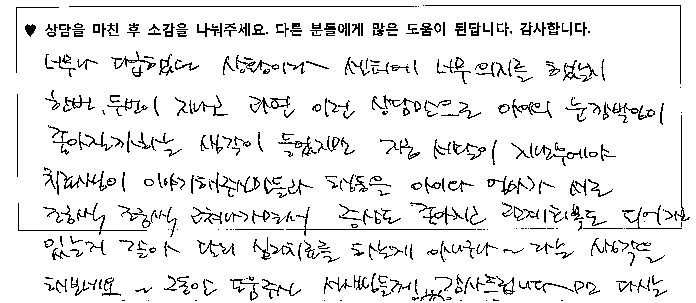 ♥ 상담을 마친 후 소감을 나눠주세요. 다른 분들에게 많은 도움이 된답니다. 감사합니다.
너무나 다급했던 상황이라 센터에 너무 의지를 했었지
한번, 두번이 지나고 과연 이런 상담만으로 아이의 눈깜박임이
좋아질까하는 생각이 들었지만 지금 석달이 지난후에야
치료사님이 이야기해주신 말들과 행동을 아이와 엄마가 서로
조금씩 조금씩 고쳐나가면서 증상도 좋아지고 관계회복도 되어가고
있는거 같아 단지 심리치료를 하는게 아니구나~ 라는 생각을
해보네요~ 그동안 도움주신 선생님들께 감사드립니다 다시는